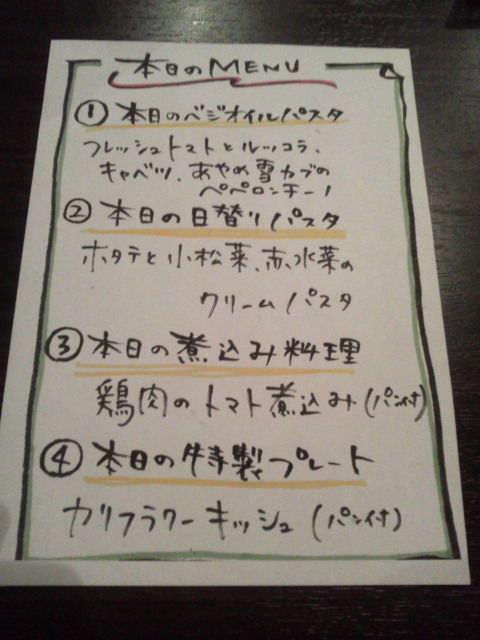 本日のMENU
① 本日のベジオイルパスタ
フレッシュトマトとルッコラ、
キャベツ、あやめ雪カブの
ペペロンチーノ
② 本日の日替りパスタ
ホタテと小松菜、赤水菜の
クリームパスタ
③ 本日の煮込み料理
鶏肉のトマト煮込み(パン付)
④ 本日の特製プレート
カリフラワーキッシュ(パン付)